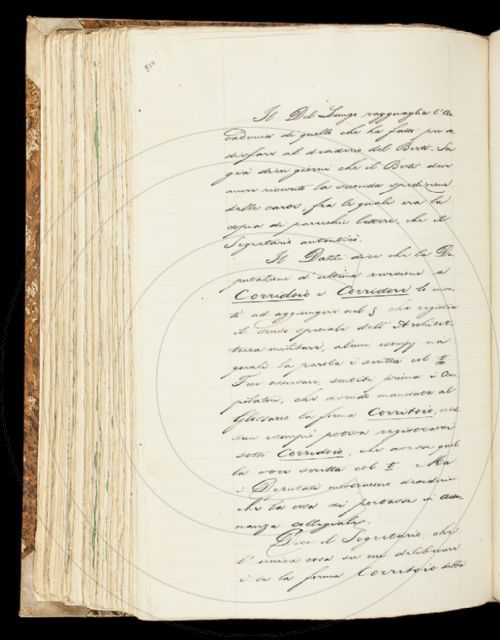 510
Il Del Lungo ragguaglia l'Ac-
cademia di quello che ha fatto per so-
disfare al desiderio del Berti. Sa
già dieci giorni che il Berti deve
avere ricevuto la seconda spedizione
delle carte, fra le quali era la
copia di parecchie lettere, che il
Segretario autenticò.
Il Datti dice che la De-
putazione d'ultima revisione a
Corridoio e Corridore la in-
ti ad aggiungere nel § che registra
il senso speciale dell'Architet-
tura militare, alcuni esempj nei
quali la parola è scritta col t.
Fu osservare, sentiti prima i Com-
pilatori, che avendo mandata al
Glossario la forma Corritoio,
esempio poteva registrarsi
sotto Corridoio, che avesse quel-
la voce scritta col t. Ma
i Deputati
che la cosa si portasse in adu-
nanza collegiale.
Dice il Segretario, che
l'unica cosa su cui deliberare
è se la forma Corritoio debba